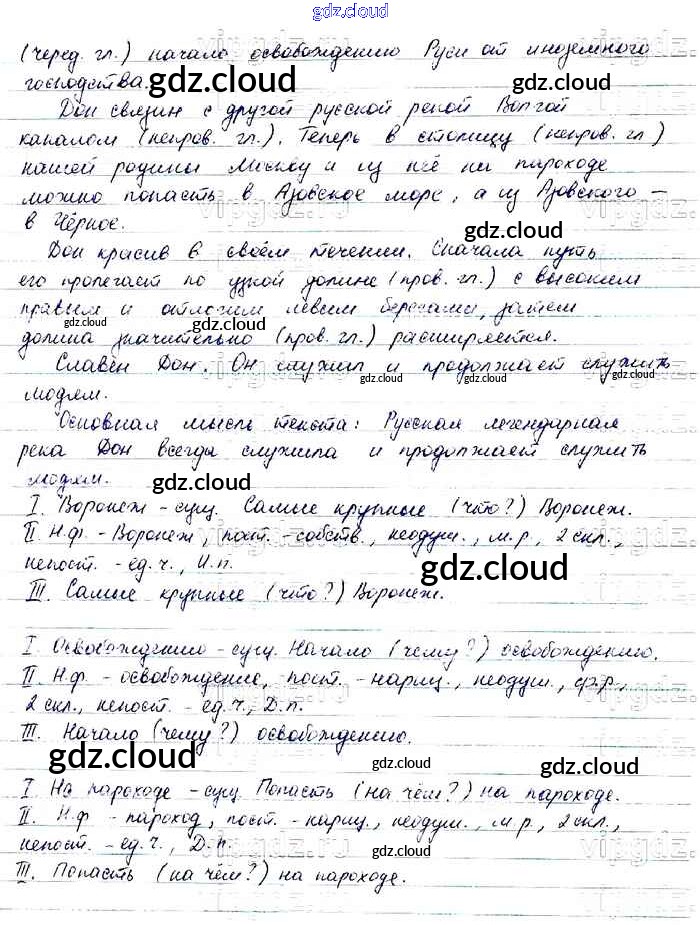 gdz.cloud
(черед. гл.) начало освобождению Руси от иноземного
господства.
Дон связан с другой русской рекой Волгой
каналом (непров. гл.). Теперь в столицу (непров. гл)
нашей родины Москву и из неё на пароходе
можно попасть в Азовское море, а из Азовского –
в Чёрное.
Дон красив в своём течении. Сначала путь
его пролегает по узкой долине (пров. гл.) с высоким
правым и отлогим левым берегами, затем
долина значительно (пров. гл.) расширяется.
Славен Дон. Он служил и продолжает служить
людям.
Основная мысль текста: Русская легендарная
река Дон всегда служила и продолжает служить
людям.
I. Воронеж – сущ. Самые крупные (что?) Воронеж.
II Н.ф. – Воронеж, пост. – собств., неодуш., м.р., 2 скл.,
непост. – ед.ч., И.п.
III. Самые крупные (что?) Воронеж.
I. Освобождению – сущ. Начало (чему?) освобождению.
II Н.ф. – освобождение, пост. – нариц., неодуш., ср.р.,
2 скл., непост. – ед.ч., Д.п.
III. Начало (чему?) освобождению.
I. На пароходе – сущ. Попасть (на чём?) на пароходе.
II. Н.ф – пароход, пост. – нариц., неодуш., м.р., 2 скл.,
непост. – ед.ч., Д.п.
III. Попасть (на чём?) на пароходе.